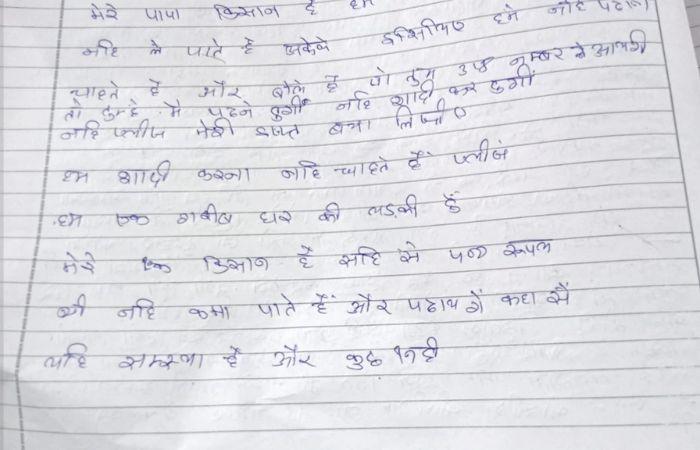 मेरे पापा किसान है हम
नहि ले पाते है इसिलिए हमे नहि पढाना
चाहते है और बोले है जो तुम उस नम्बर ले आयगी
तो तुम्हे मै पढने दुगीं नहि शादी कर दुगीं
नहि प्लीज मेरी इज्त बचा लिजीए
हम शादी करना नहि चाहते हैं प्लीजं
हम एक गरीब घर की लडकी हैं
मेरे एक किसान हैं सहि से रूपल
भी नहि कमा पाते हैं और पढायगें कहा सें
यहि समस्या हैं और कुछ नही